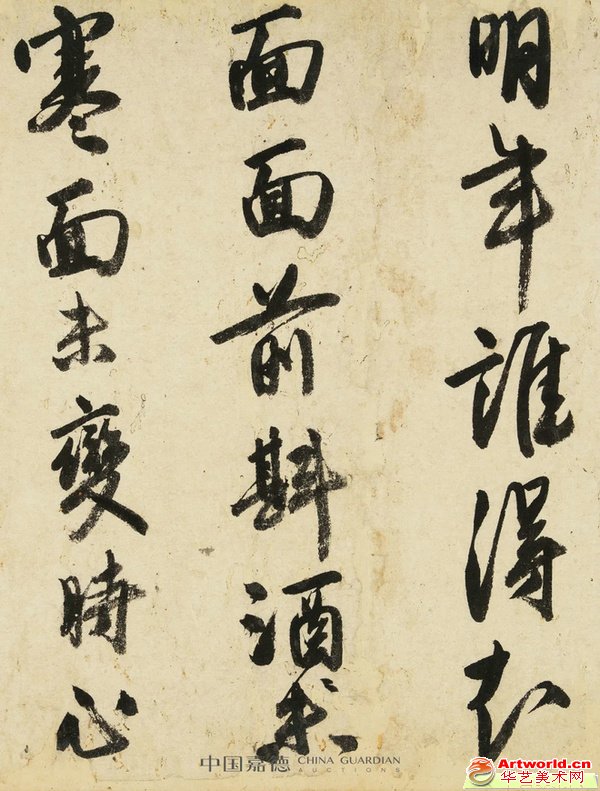 明年誰得
面面前斟酒未
寒面未變時心
中国嘉德 CHINA GUARDIAN
AUCTIONS
Artworld.cn
华艺美术网